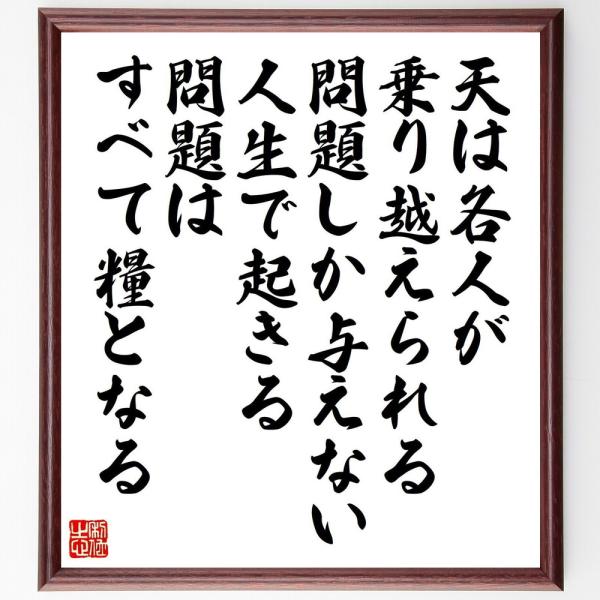 天は各人が
乗り越えられる
問題しか与えない
人生で起きる
問題は
すべて糧となる